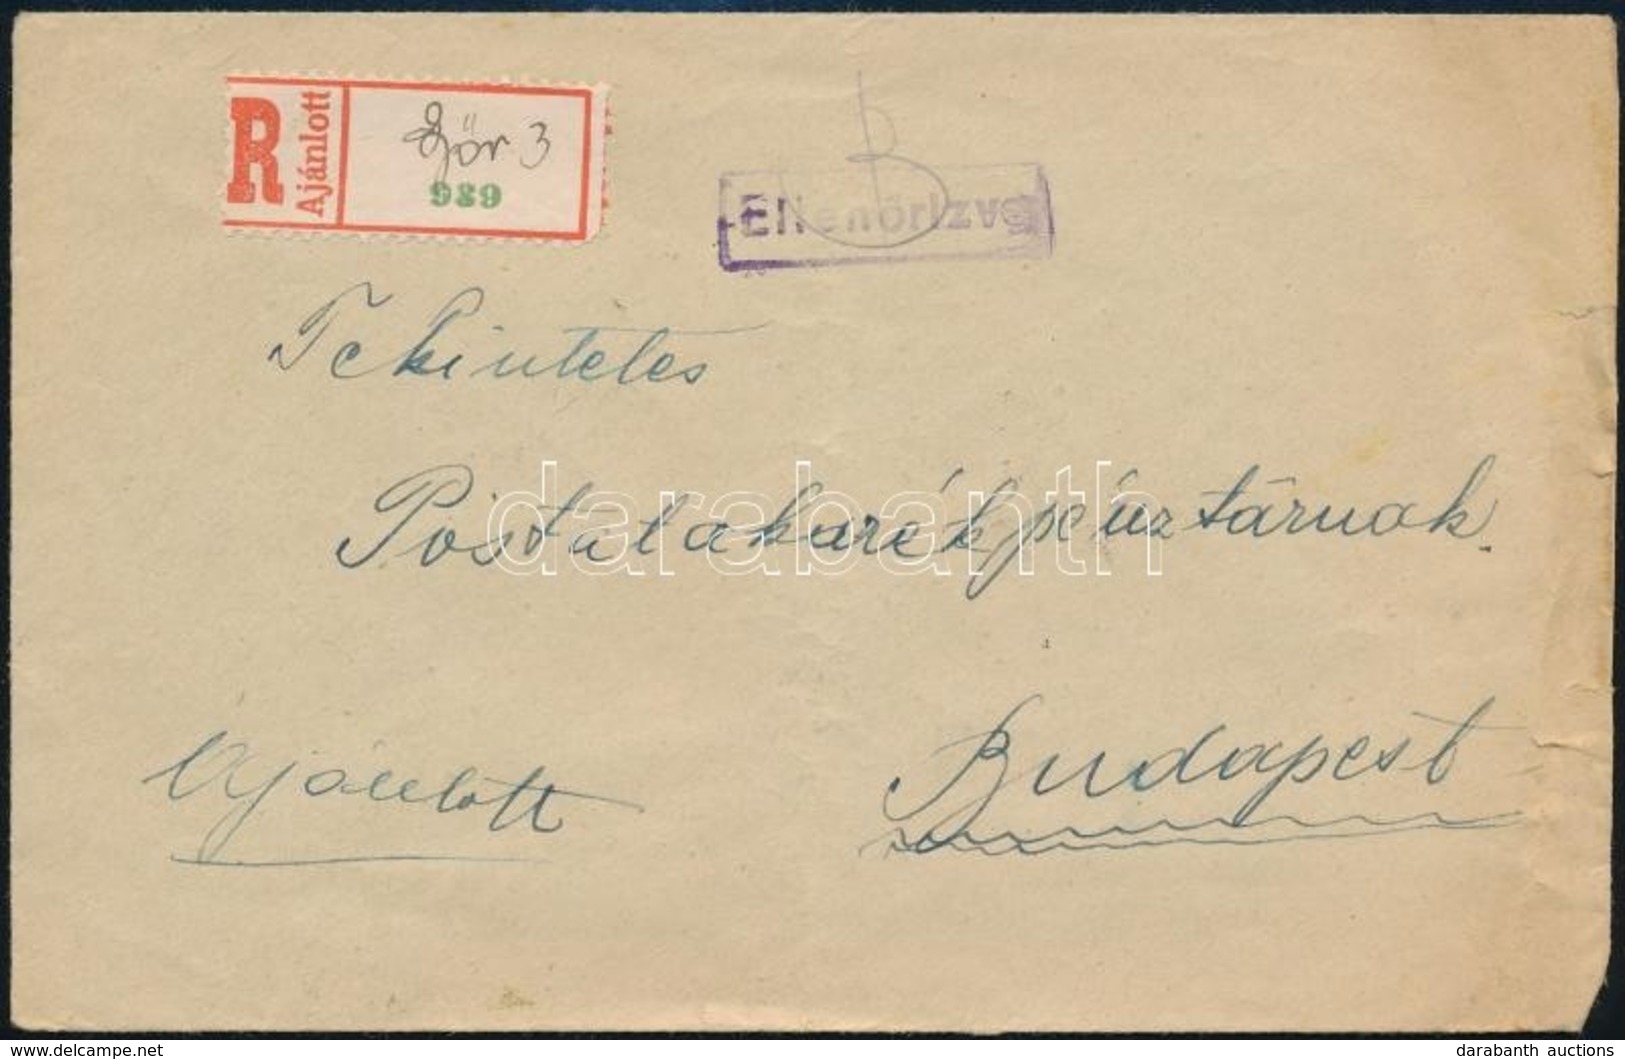 R Ajánlott
Győr 3
986
Ellenőrizve
B
Tekintetes
Postatakarékpénztárnak
darabanth
Ajánlott
Budapest
www.delcampe.net
darabanth auctions